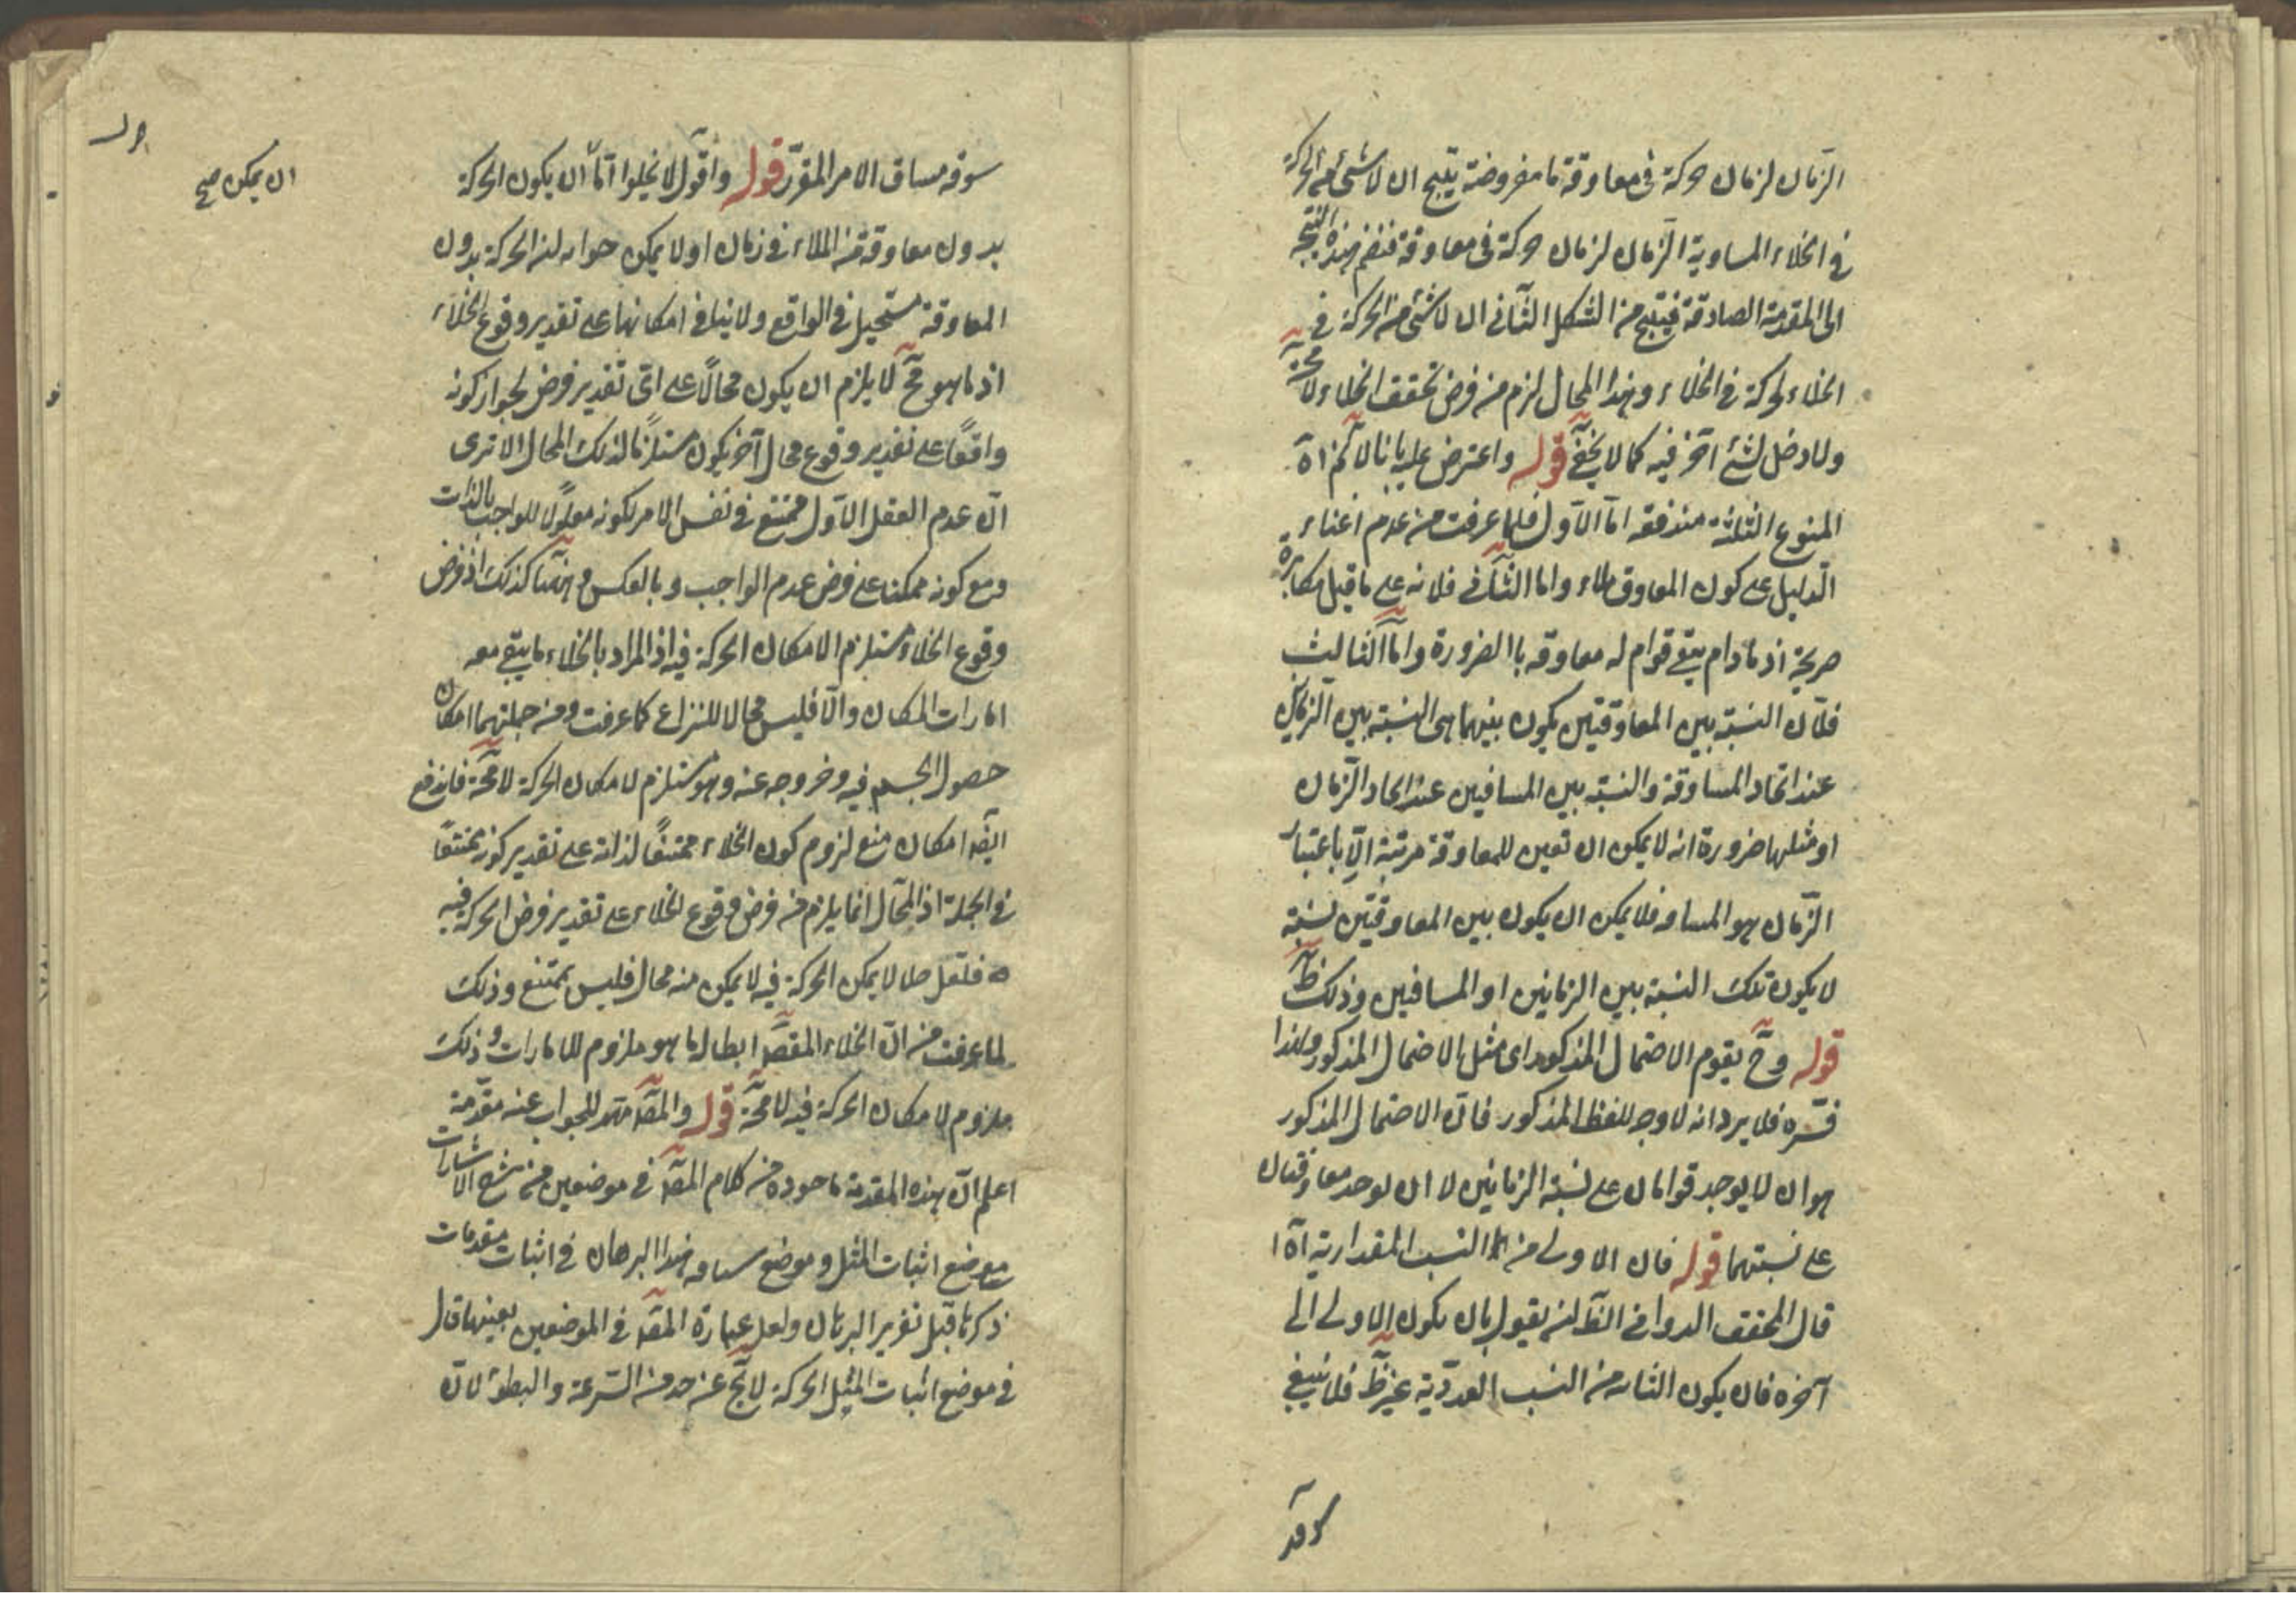 الزمان لزمان حركة فى معاوقة ما مفروضة ينتج ان لا شئ من الحركة
فى الخلاء المساوية الزمان لزمان حركة فى معاوقة فنضم هذه النتيجة
الى المقدمة الصادقة فينتج من الشكل الثانى ان لا شئ من الحركة فى
الخلاء بحركة فى الخلاء وهذا المحال لزم من فرض تحقق الخلاء لا محة
ولا دخل لشئ آخر فيه كما لا يخفى قوله واعترض عليه بانا لا نم اه
المنوع الثلثة مندفعة اما الاول فلما عرفت من عدم اغناء
الدليل على كون المعاوق ملاء واما الثانى فلانه على ما قيل مكابرة
صريحة اذ ما دام يبقى قوام له معاوقه باالضرورة واما الثالث
فلان النسبة بين المعاوقتين يكون بينهما هى النسبة بين الزمانين
عند اتحاد المساوقة والنسبة بين المسافتين عند اتحاد الزمان
او مثلها ضرورة انه لا يمكن ان تعين للمعاوقة مرتبة الا باعتبار
الزمان هو المسافه فلا يمكن ان يكون بين المعاوقتين نسبة
لا يكون تلك النسبة بين الزمانين او المسافتين وذلك ظ
قوله وح يقوم الاحتمال المذكور اى مثل الاحتمال المذكور ولهذا
فسره فلا يرد انه لا وجه للفظ المذكور فان الاحتمال المذكور
هو ان لا يوجد قوامان على نسبة الزمانين لا ان لا يوجد معاوقتان
على نسبتهما قوله فان الاولى من النسب المقدارية اه
قال المحقق الدوانى الظ ان يقول بان يكون الاولى الى
آخره فان يكون الثانيه من النسب العددية غير ظ فلا ينبغى
سوقه مساق الامر المقرر قوله واقول لا يخلوا اما ان يكون الحركة
بدون معاوقة من الملاء فى زمان او لا يمكن جوابه ان الحركة بدون
المعاوقة مستحيل فى الواقع ولا ينافى امكانها على تقدير وقوع الخلاء
اذ ما هو مح لا يلزم ان يكون محالًا على اى تقدير فرض لجواز كونه
واقعًا على تقدير وقوع محال آخر يكون مستلزمًا لذلك المحال الا ترى
ان عدم العقل الاول ممتنع فى نفس الامر لكونه معلولًا للواجب بالذات
ومع كونه ممكنا على فرض عدم الواجب وبالعكس وههنا كذلك اذ فرض
وقوع الخلاء مستلزم الامكان الحركة فيه اذ المراد بالخلاء ما يبقى معه
امارات المكان والا فليس محالا للنزاع كما عرفت ومن جملتهما امكان
حصول الجسم فيه وخروجه عنه وهو مستلزم لامكان الحركة لا محة فاندفع
ايضه امكان منع لزوم كون الخلاء ممتنعًا لذاته على تقدير كونه ممتنعًا
فى الجملة اذ المحال انما يلزم من فرض وقوع الخلاء على تقدير فرض الحركة فيه
فلعل خلا لا يمكن الحركة فيه لا يمكن منه محال فليس بممتنع وذلك
لما عرفت من ان الخلاء المقصه ابطاله ما هو ملزوم للامارات وذلك
ملزوم لامكان الحركة فيه لا محة قوله والمقه مهد للجواب عنه مقدمة
اعلم ان هذه المقدمة ماخوده من كلام المقه فى موضعين من شرح الاشارات
موضع اثبات المثل وموضع سياقه هذا البرهان فى اثبات مقدمات
ذكرها قبل تقرير البرهان ولعل عبارة المقه فى الموضعين بعينها قال
فى موضع اثبات المثل الحركة لا يخ عن حد من السرعة والبطؤ لان
ان يمكن صح